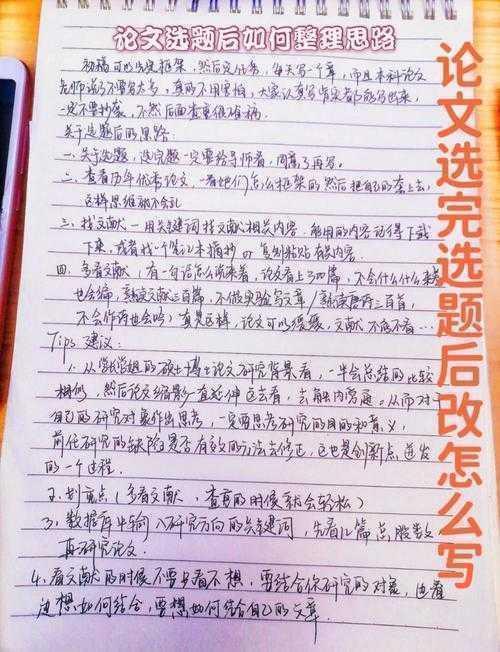 论文选题后如何整理思路
初稿可以先定框架，然后定任务，每天写一个章，而且本科论文
老师说了不要写太多，真的不用害怕，大家认真写肯定都能写出来，
一定不要抄袭，不然后面查重很有病
关于选题后的思路：
一、关于选题，选完题一定要给导师看，同意了再写。
二、查看历年优秀论文，看她们怎么框架的然后把自己的套上去，
这样思维就不会乱
三、找文献 一 用关键词找文献相关内容，能用的内容记得下载
下来，或者找一个笔记本摘抄 or 复制粘贴有关内容.
四、多看文献，（有一句话怎么说来着，论文看上三四篇，不会什么什么来着
也会编，熟读文献三百篇，不做实验写文章/熟读唐诗三百首，
不会作诗也会吟）真是这样，论文可以缓缓，文献不能不看…
Tips 建议：
1. 从学长学姐的硕士博士论文研究背景看，一半会总结的比较
相似，然后论文缩影一直延伸区去看，去角内容题。从而对于
自己的研究对象作出思考，一定要思考研究的目的和意义，
前代研究的缺陷是否有效的方法去修正，这也是创新点迸发
的一个过程.
2. 划重点（多看文献，查重的时候就会轻松）
3. 数据库中输入研究方向的关键词，先看几篇总
再研究论文.
4. 看文献的时候不要只看不想，要结合你研究的对象，边看
边想如何结合，要想如何结合自己的文章.
论文选完选题后改怎么写